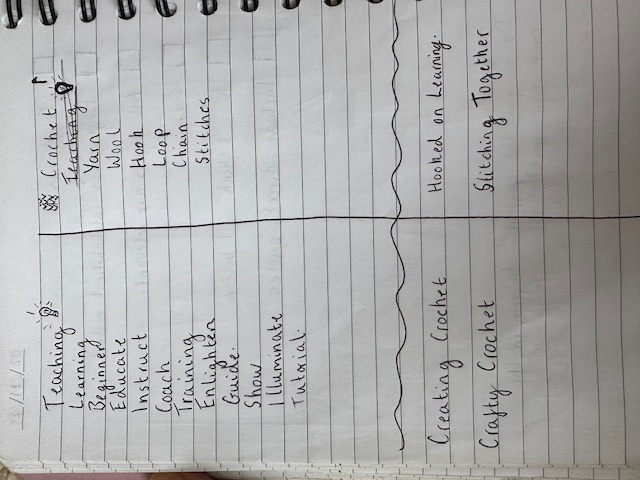 Teaching
Learning
Beginner
Educate
Instruct
Coach
Training
Enlighten
Guide.
Show
Illuminate
Tutorial.
Crochet
Teaching
Yarn
Wool
Hook
Loop
Chain
Stitches
Creating Crochet
Hooked on Learning.
Crafty Crochet
Stitching Together